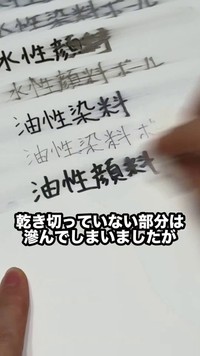 水性顔料
水性顔料ボール
油性染料
油性染料ボ
油性顔料
乾き切っていない部分は
滲んでしまいましたが